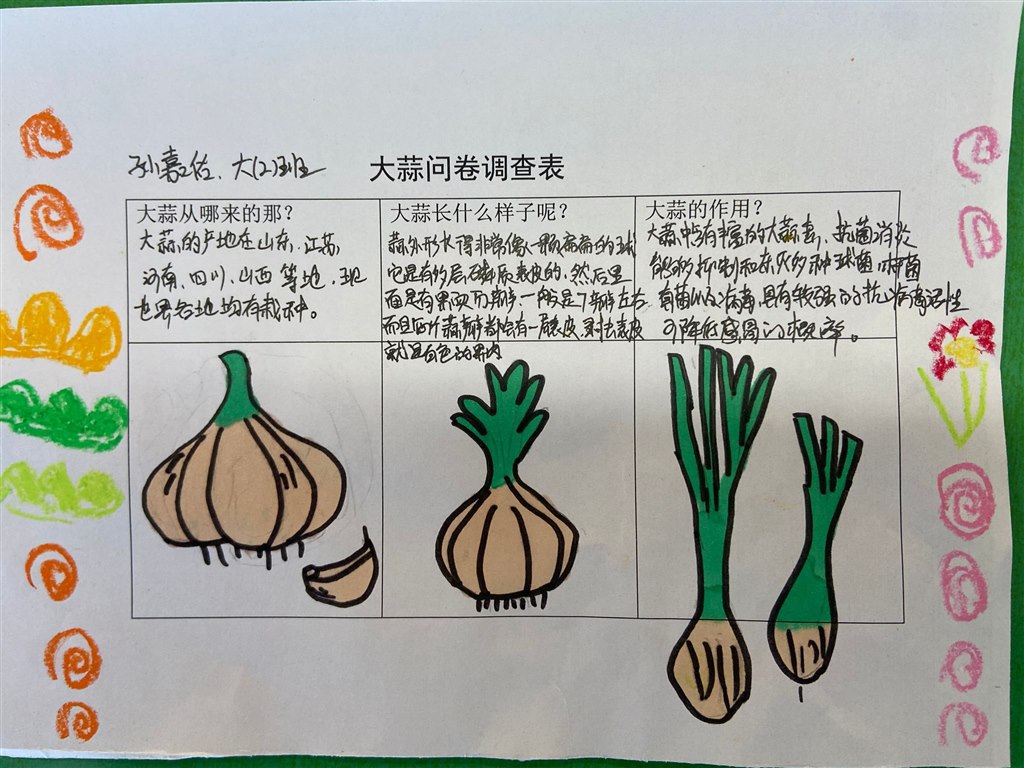 孙嘉佑、大(2)班
大蒜问卷调查表
大蒜从哪来的那？
大蒜的产地在山东、江苏
河南、四川、山西等地，现
世界各地均有栽种。
大蒜长什么样子呢？
蒜外形长得非常像一颗扁扁的球
它是有多层磷质表皮的，然后里
面是有果肉的瓣一般是7瓣左右
而且每片蒜瓣都会有一层皮，剥去表皮
就是白色的果肉
大蒜的作用？
大蒜中含有丰富的大蒜素，抗菌消炎
能够抑制和杀灭多种球菌、杆菌
真菌以及病毒，具有较强的抗病毒活性
可降低感冒的概率。